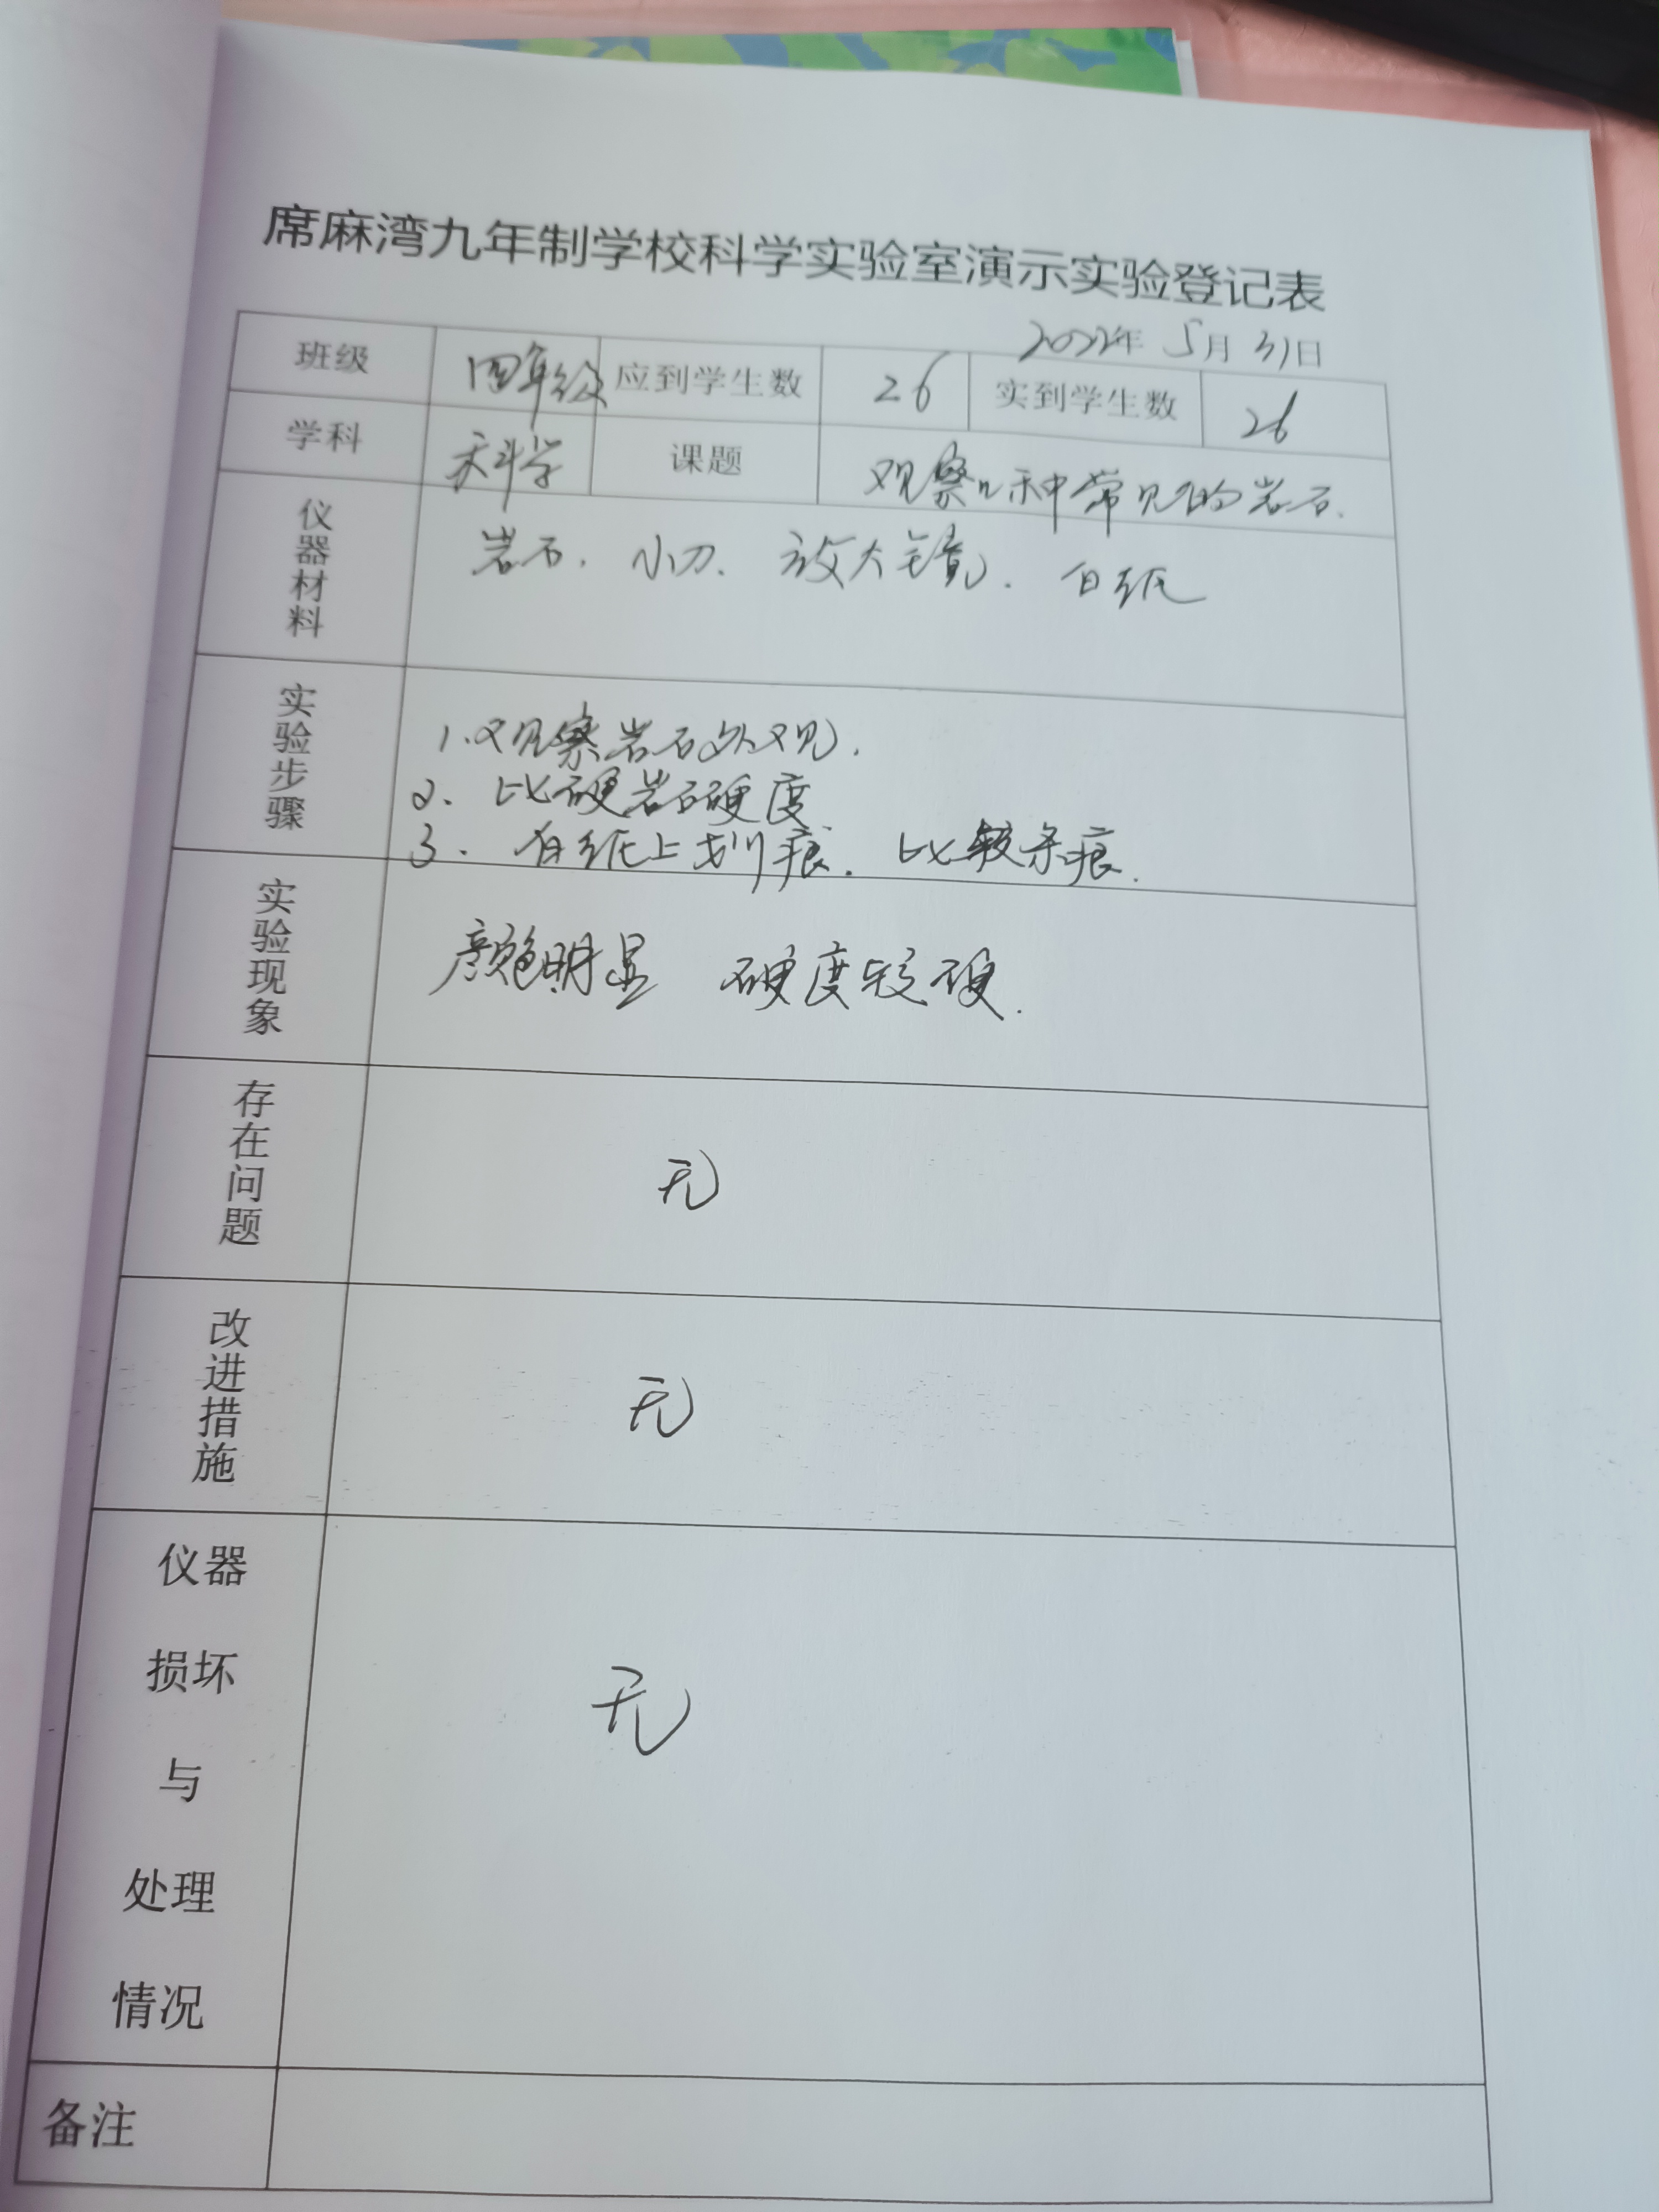 席麻湾九年制学校科学实验室演示实验登记表
2022年 5月 31日
班级 四年级 应到学生数 26 实到学生数 26
学科 科学 课题 观察几种常见的岩石.
仪器材料 岩石. 小刀. 放大镜. 白纸
实验步骤
1.观察岩石外观.
2. 比硬岩石硬度
3. 白纸上划痕. 比较条痕.
实验现象 颜色明显 硬度较硬.
存在问题 无
改进措施 无
仪器
损坏
与
处理
情况
无
备注